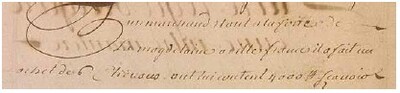 un marchand etant a la foire de
la magdelaine a ville franche il a fait un
achet de 6 chevaux ont lui coutent 4000 ₶ scavoir